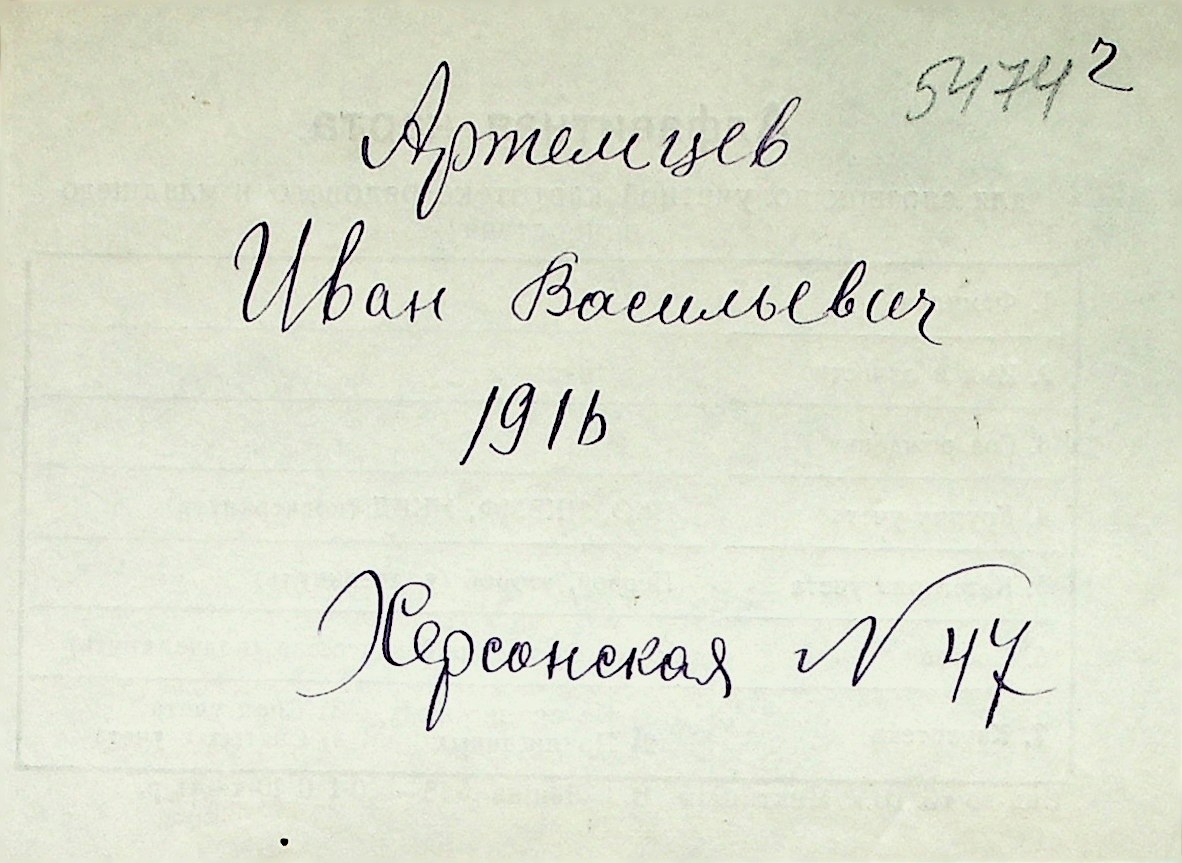 5474 2
Артемцев
Иван Васильевич
1916
Херсонская N 47